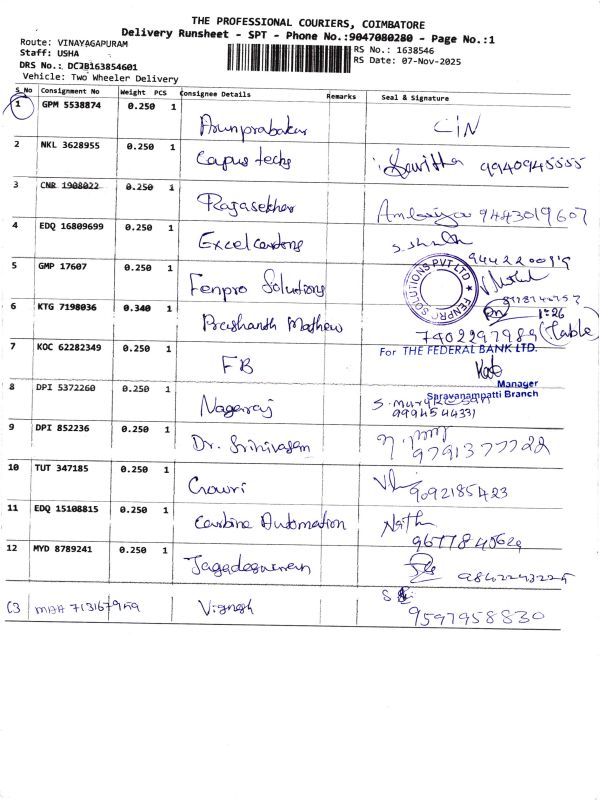 THE PROFESSIONAL COURIERS, COIMBATORE
Delivery Runsheet - SPT - Phone No.:9047080280 - Page No.:1
Route: VINAYAGAPURAM
Staff: USHA RS No.: 1638546
DRS No.: DCJB163854601 RS Date: 07-Nov-2025
Vehicle: Two Wheeler Delivery
S_No Consignment No Weight PCS Consignee Details Remarks Seal & Signature
1 GPM 5538874 0.250 1
Arunprabakar
2 NKL 3628955 0.250 1
Capus techs Savitha 9940945555
3 CNR 1908022 0.250 1
Rajasekhar 9443019607
4 EDQ 16809699 0.250 1
Excel
5 GMP 17607 0.250 1
Fenpro Solutions
FENPRO SOLUTIONS PVT LTD
6 KTG 7198036 0.340 1
Prashanth Mathew
1:26
7402297989 (Table)
7 KOC 62282349 0.250 1
FB
For THE FEDERAL BANK LTD.
Manager
Saravanampatti Branch
8 DPI 5372260 0.250 1
Nagaraj
S. Murugesan
9994544331
9 DPI 852236 0.250 1
Dr. Srinivasan 9791377722
10 TUT 347185 0.250 1
Gowri 9092185423
11 EDQ 15108815 0.250 1
Carbine Automation
12 MYD 8789241 0.250 1
Jagadeswaran
13 Vignesh
9597958830